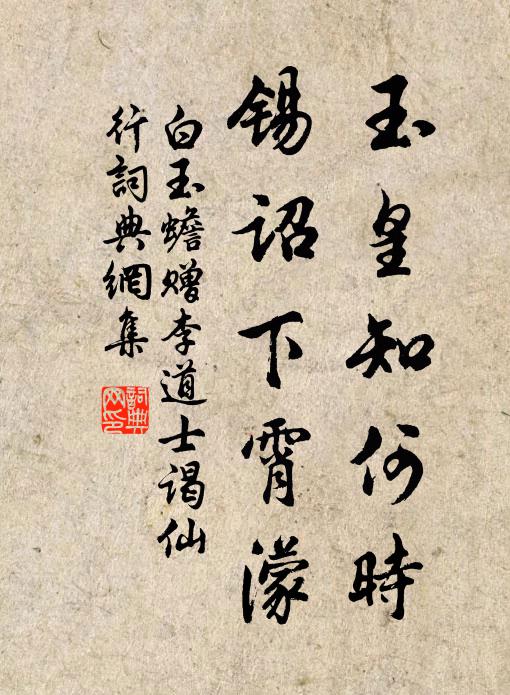 玉皇知何時
錫詔下霄濛
白玉蟾贈李道士謁仙
行詞典網集
詞典
网印